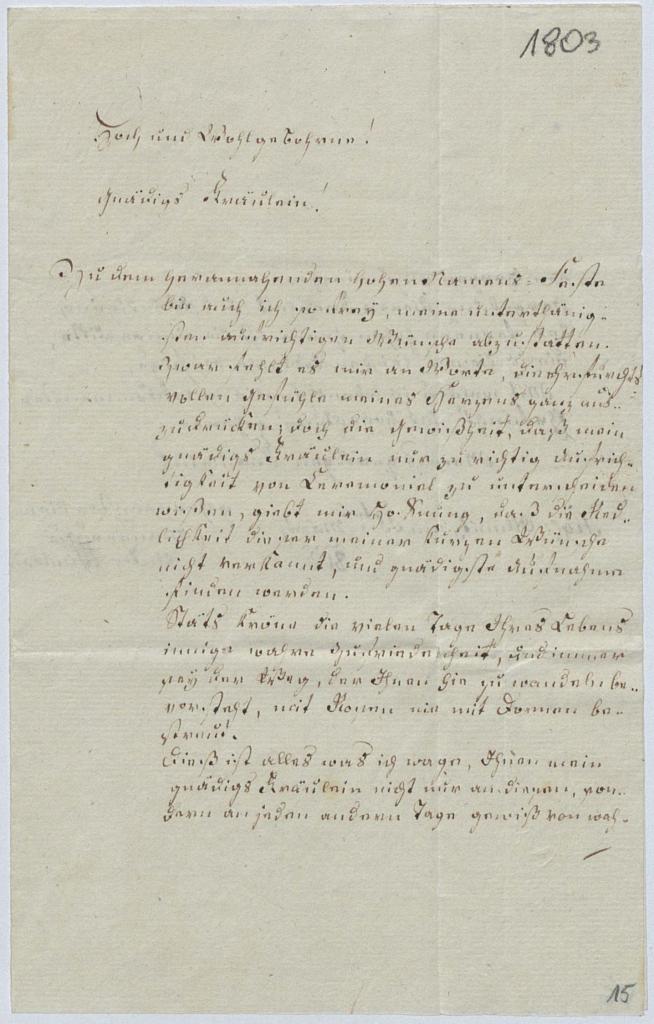 1803
Hoch und Wohlgebohrne!
Gnädigs Fräulein!
Zu dem herannahenden hohen Namens-Feste
bin auch ich so frey, meine unterthänig-
sten aufrichtigen Wünsche abzustatten.
Zwar fehlt es mir an Worte, die ehrfurchts
vollen Gefühle meines Herzens ganz aus-
zudrücken; doch die Gewißheit, daß mein
gnädigs Fräulein nur zu richtig Aufrich-
tigkeit von Ceremoniel zu unterscheiden
wißen, giebt mir Hoffnung, daß die Red-
lichkeit dieser meiner kurzen Wünsche
nicht verkannt, und gnädigste Aufnahme
finden werden.
Stäts kröne die vielen Tage Ihres Lebens
innige wahre Zufriedenheit, und immer
sey der Weg, der Ihnen hie zu wandeln be-
vorsteht, mit Rosen nie mit Dornen be-
streut.
Dieß ist alles was ich wage, Ihnen mein
gnädigs Fräulein nicht nur an diesen, son-
dern an jeden andern Tage gewiß von wah-
15